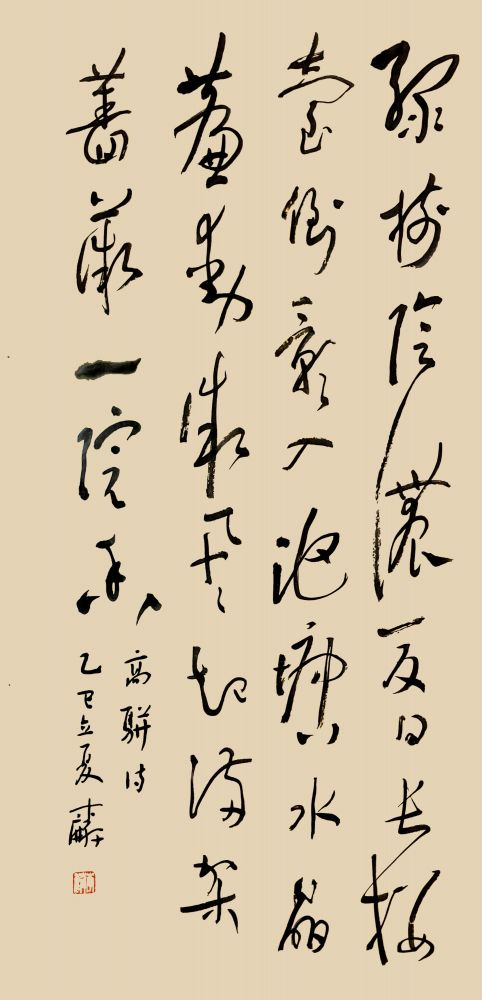 綠樹陰濃夏日長樓
臺倒影入池塘水晶
簾動微風起滿架
薔薇一院香
高駢詩
乙巳立夏